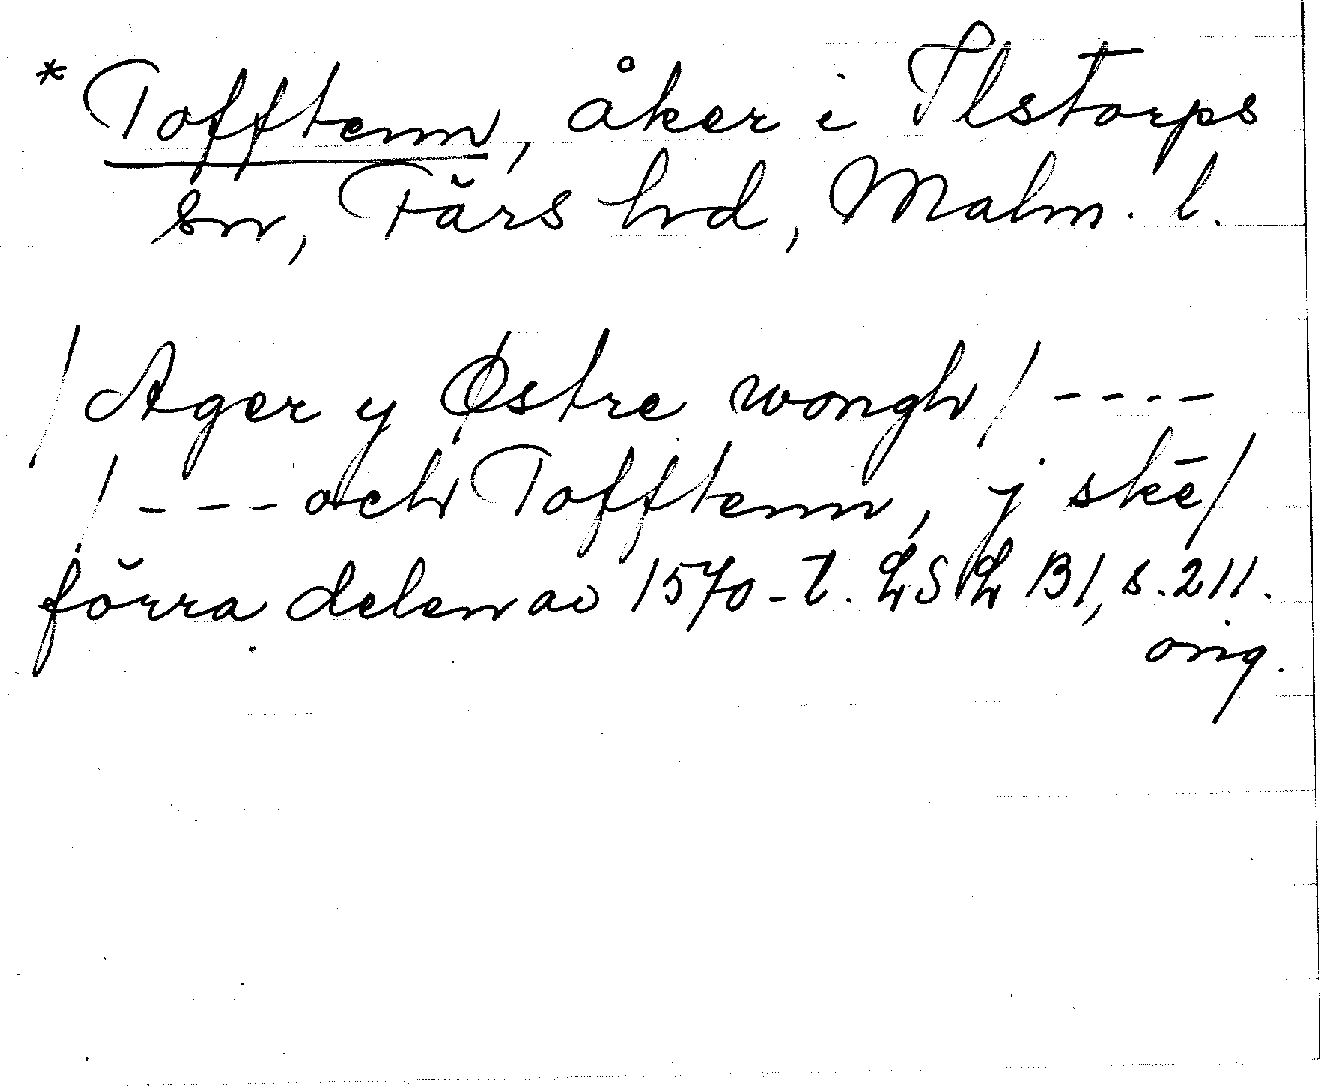 * Tofftenn, åker i Ilstorps
sn, Färs hd, Malm. l.
/Ager y Østre wongh/ ----
/---och Tofftenn, y skē/
förra delen av 1570-t. LSL B1, s. 211.
orig.